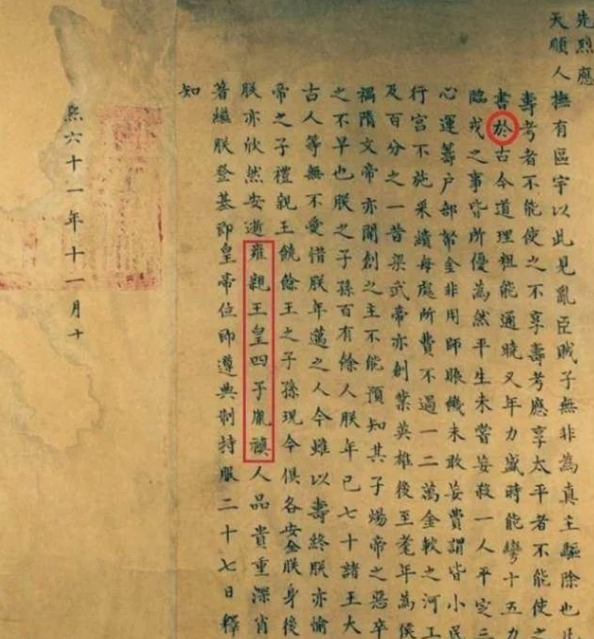 先烈應
天順人撫有區宇以此見亂臣賊子無非為真主驅除也凡
壽考者不能使之不享壽考應享太平者不能使之
書於古今道理粗能通曉又年力盛時能彎十五力
臨戎之事皆所優為然平生未嘗妄殺一人平定三
心運籌戶部帑金非用師賑饑未敢妄費謂皆小民
行宮不施采繢每處所費不過一二萬金較之河工
及百分之一昔梁武帝亦創業英雄後至耄年為侯
禍隋文帝亦開創之主不能預知其子煬帝之惡卒
之不早也朕之子孫百有餘人朕年已七十諸王大
古人等無不愛惜朕年邁之人今雖以壽終朕亦愉
帝之子禮親王饒餘王之子孫現今俱各安全朕身後
朕亦欣然安逝雍親王皇四子胤禛人品貴重深肖
著繼朕登基即皇帝位即遵典制持服二十七日釋
知
熙六十一年十一月十